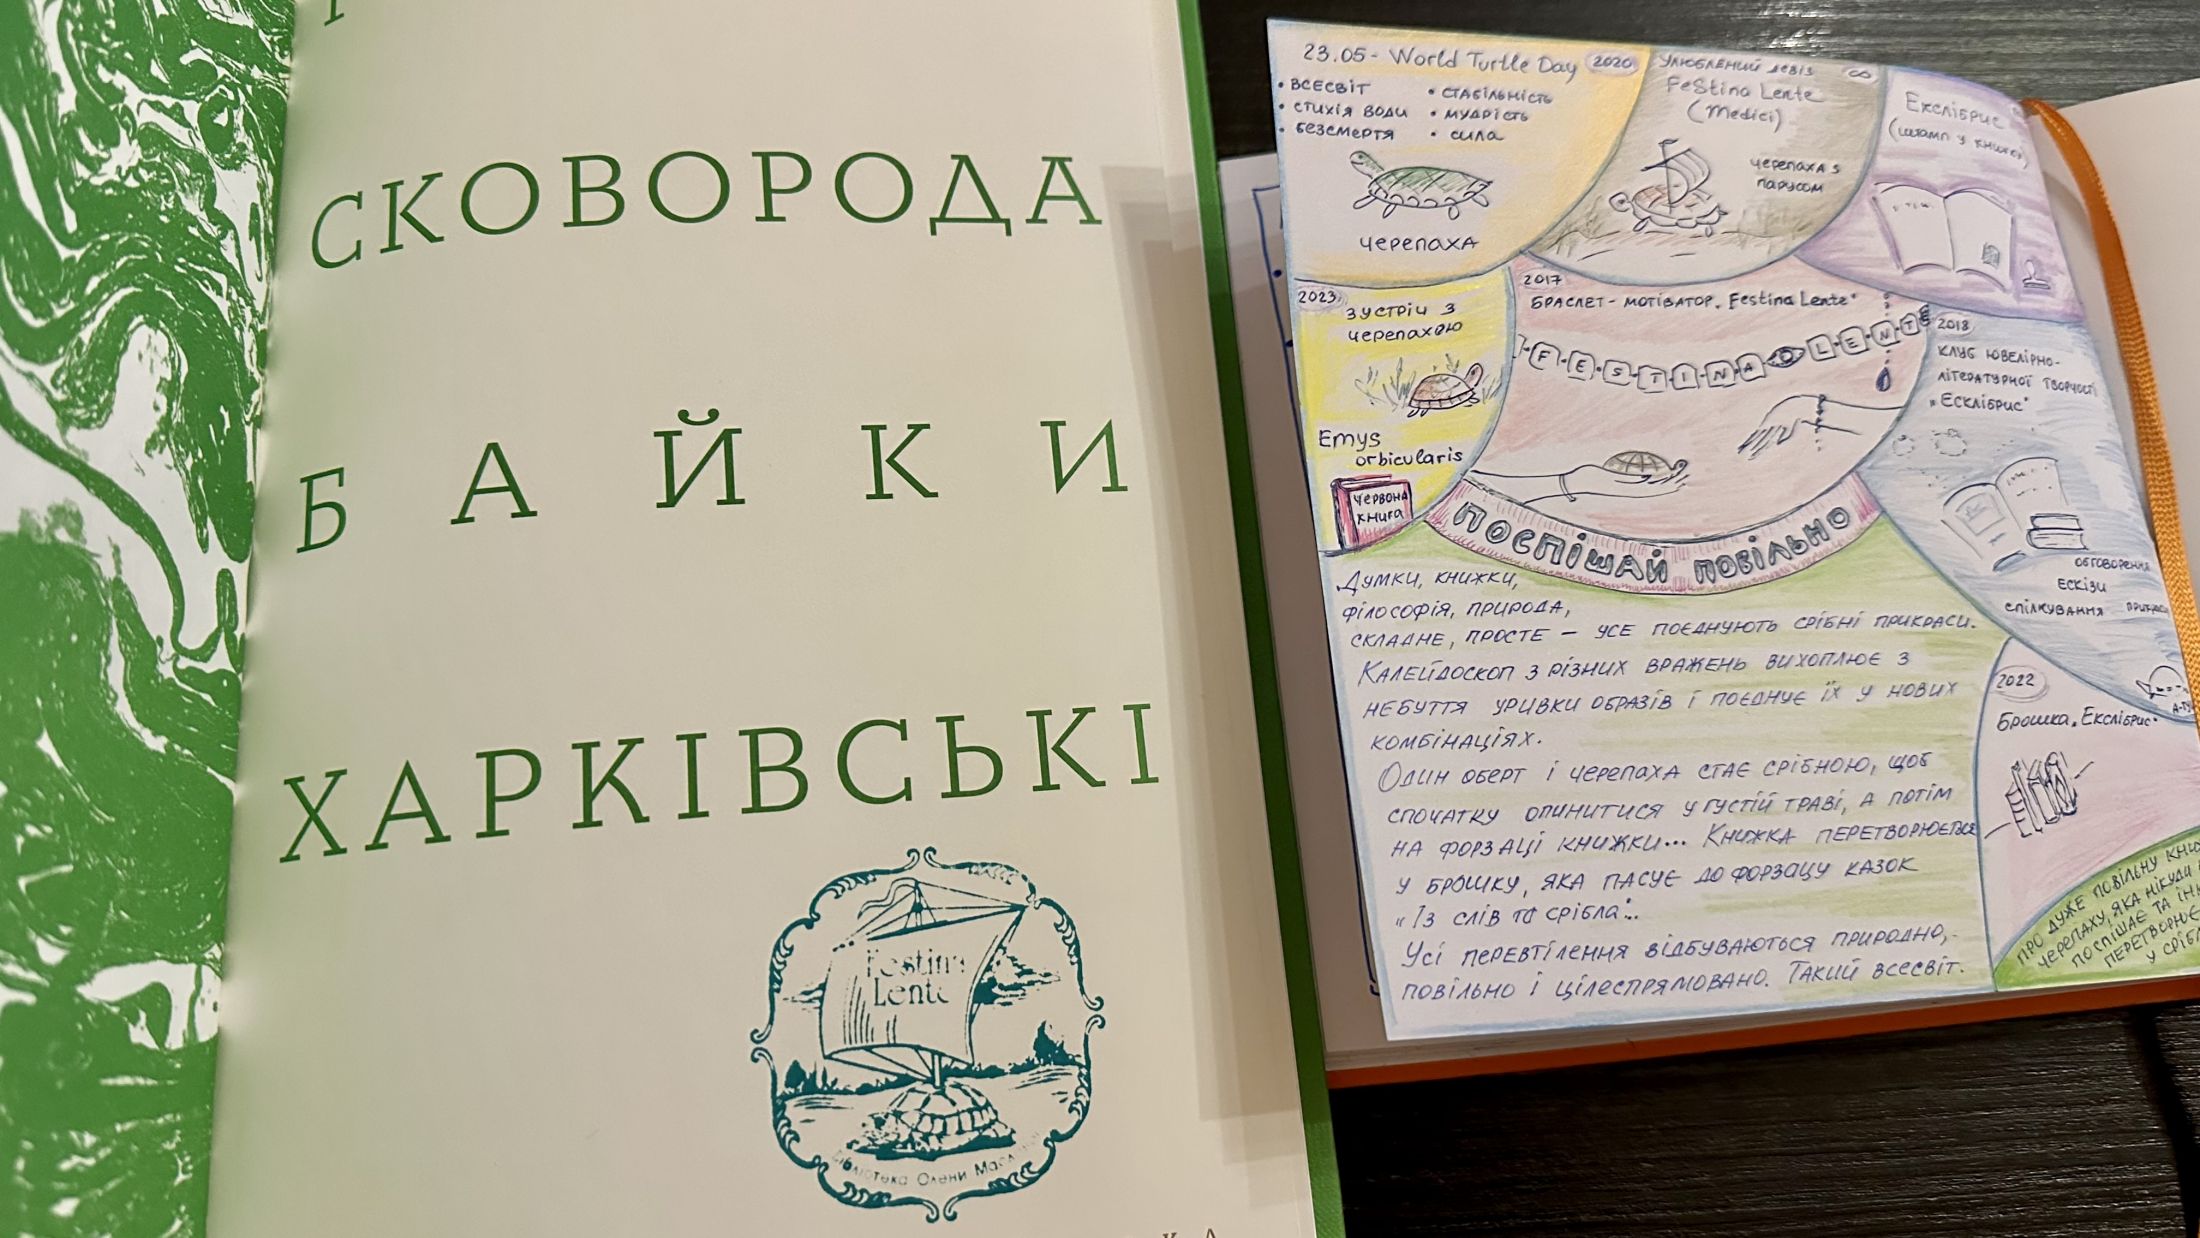 СКОВОРОДА
БАЙКИ
ХАРКІВСЬКІ
Festina
Lente
Бібліотека Олени
23.05 - World Turtle Day 2020
• ВСЕСВІТ
• СТИХІЯ ВОДИ
• БЕЗСМЕРТЯ
• СТАБІЛЬНІСТЬ
• МУДРІСТЬ
• СИЛА
ЧЕРЕПАХА
УЛЮБЛЕНИЙ ДЕВІЗ ∞
FeStina Lente
(Medici)
ЧЕРЕПАХА З
ПАРУСОМ
Екслібрис
(штамп у книжці)
2023
ЗУСТРІЧ З
ЧЕРЕПАХОЮ
Emys
orbicularis
ЧЕРВОНА
КНИГА
2017
БРАСЛЕТ - МОТИВАТОР „Festina Lente"
F·E·S·T·I·N·A L·E·N·T·E
ПОСПІШАЙ ПОВІЛЬНО
2018
КЛУБ ЮВЕЛІРНО-
ЛІТЕРАТУРНОЇ ТВОРЧОСТІ
„ЕСКЛІБРИС"
ОБГОВОРЕННЯ
ЕСКІЗИ
СПІЛКУВАННЯ
2022
Брошка „Екслібрис"
Думки, книжки,
філософія, природа,
складне, просте — усе поєднують срібні прикраси.
Калейдоскоп з різних вражень вихоплює з
небуття уривки образів і поєднує їх у нових
комбінаціях.
Один оберт і черепаха стає срібною, щоб
спочатку опинитися у густій траві, а потім
на форзаці книжки... Книжка перетворюється
у брошку, яка пасує до форзацу казок
„Із слів та срібла"...
Усі перевтілення відбуваються природно,
повільно і цілеспрямовано. Такий всесвіт.
ПРО ДУЖЕ ПОВІЛЬНУ
ЧЕРЕПАХУ, ЯКА НІКУДИ
ПОСПІШАЄ ТА